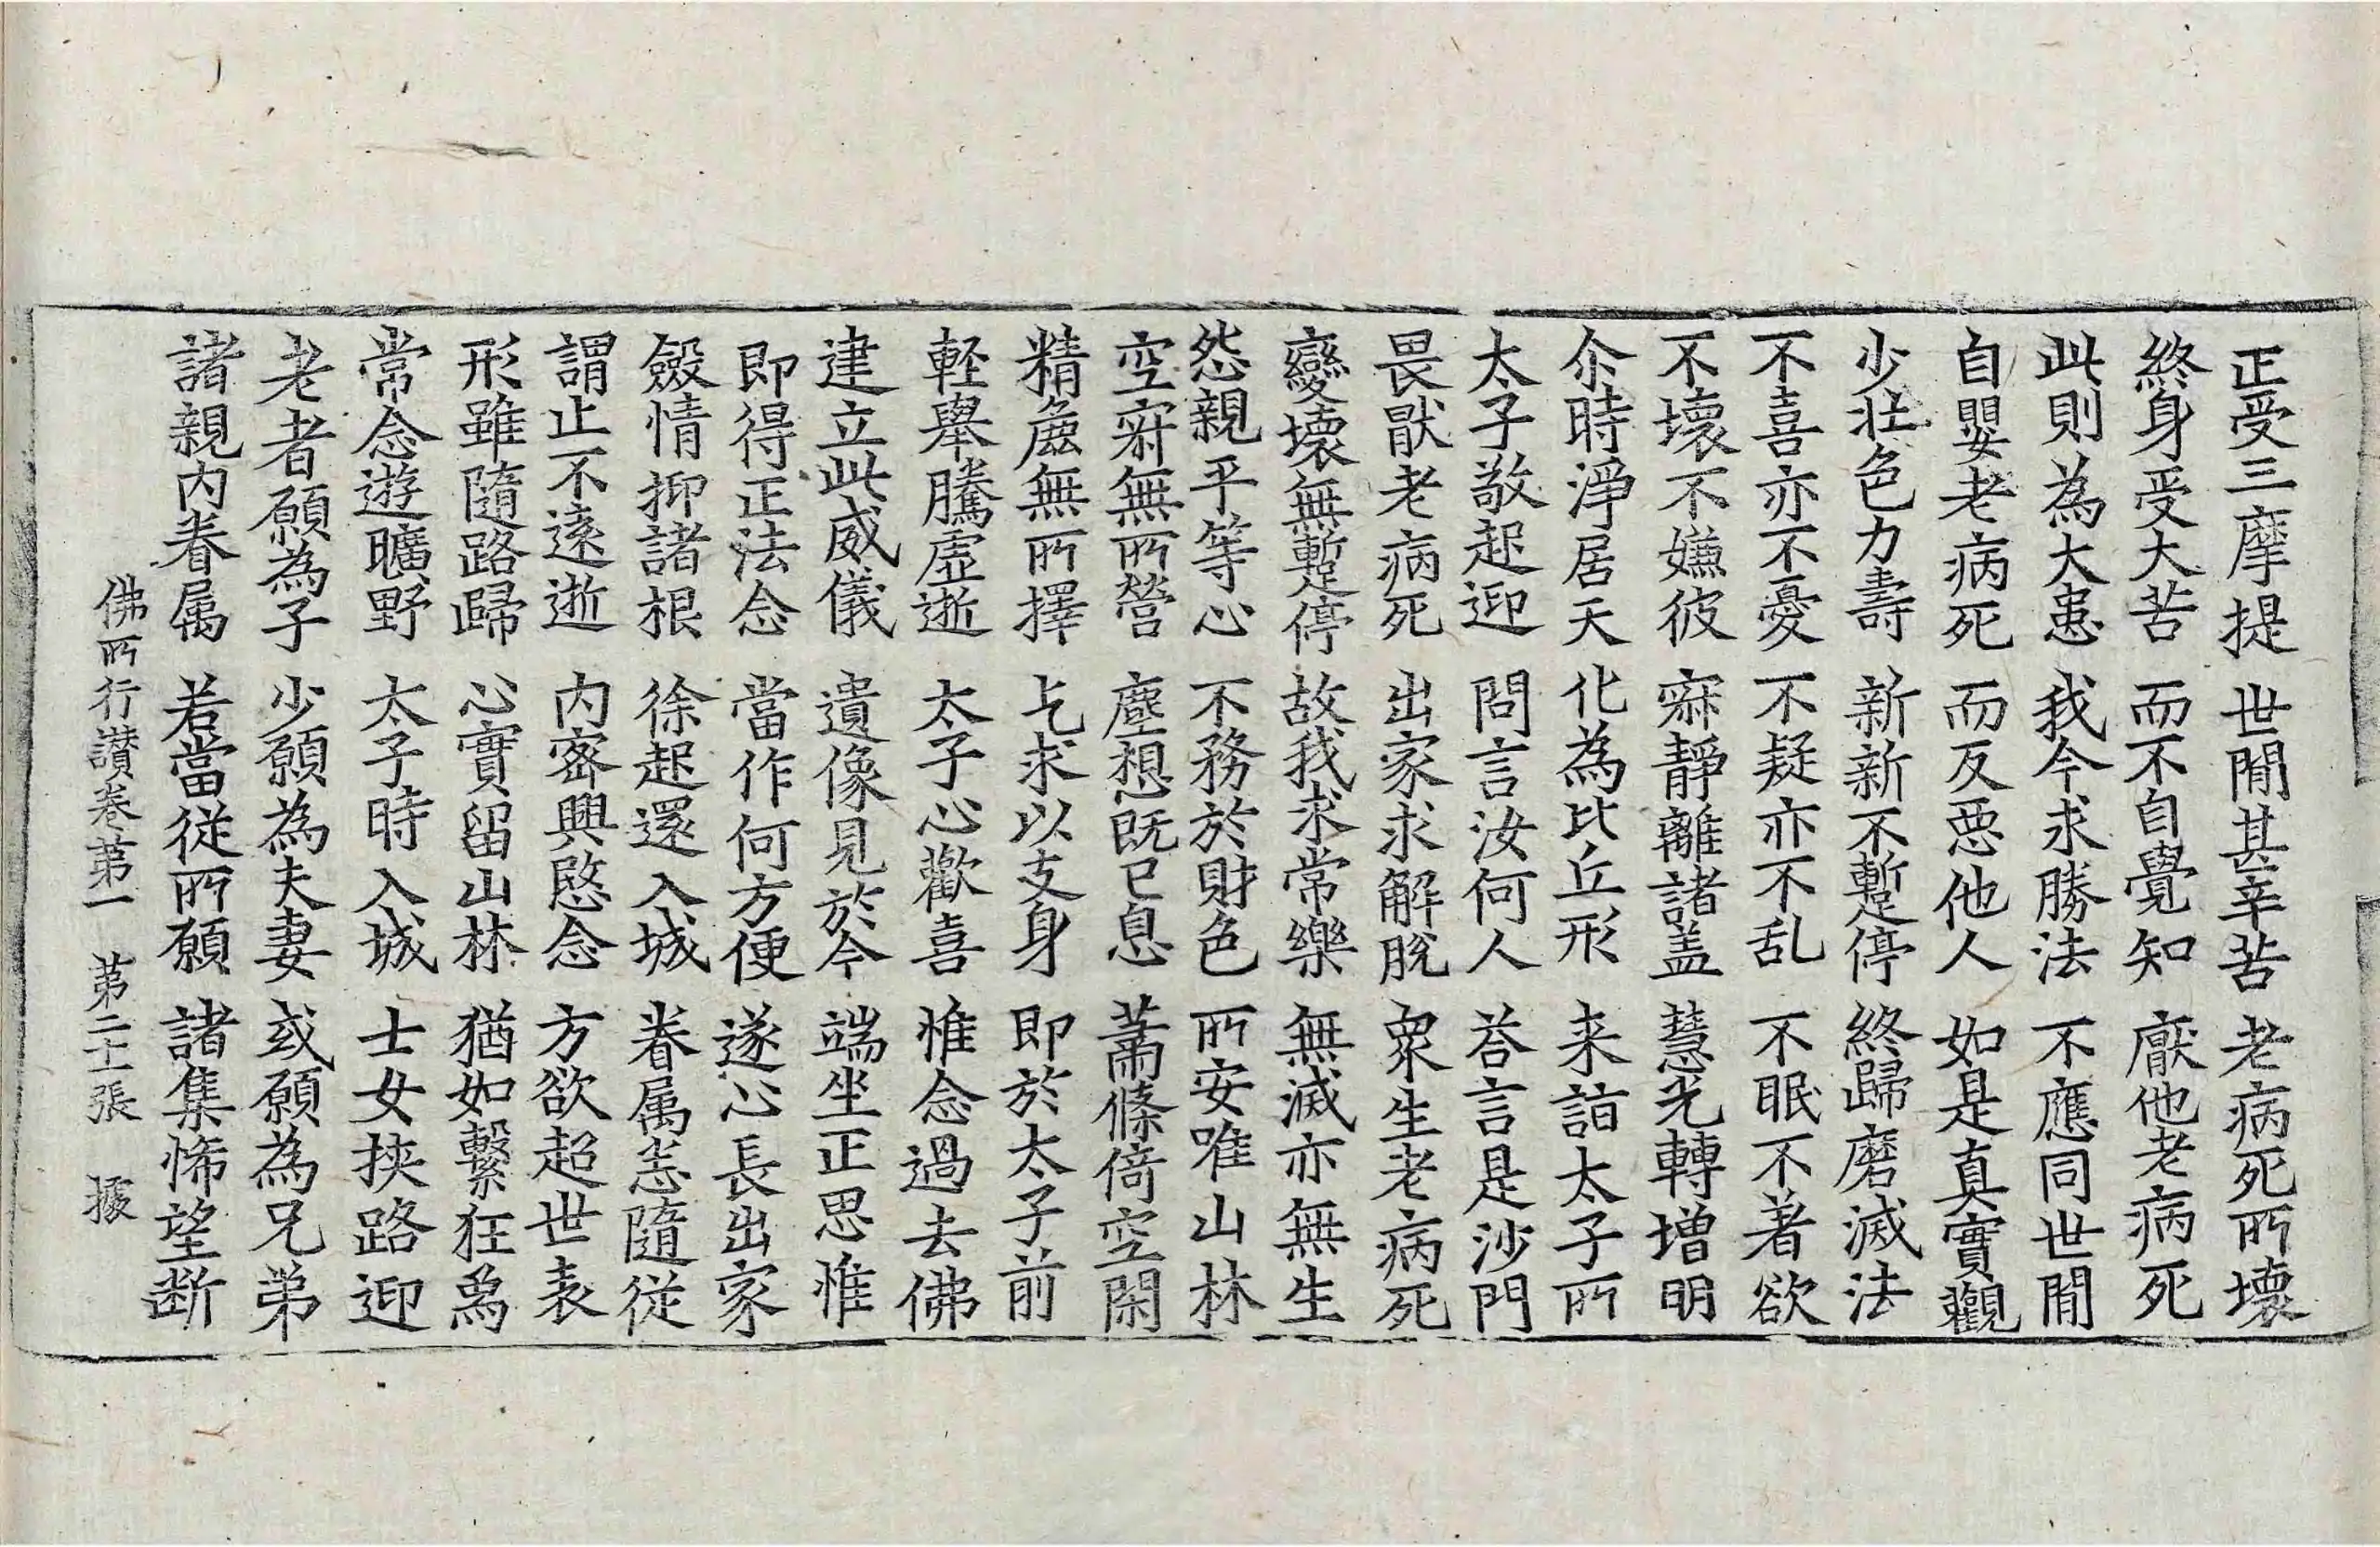 正受三摩提 世間甚辛苦 老病死所壞
終身受大苦 而不自覺知 厭他老病死
此則為大患 我今求勝法 不應同世間
自嬰老病死 而反惡他人 如是真實觀
少壯色力壽 新新不暫停 終歸磨滅法
不喜亦不憂 不疑亦不亂 不眠不著欲
不壞不嫌彼 寂靜離諸盖 慧光轉增明
尒時淨居天 化為比丘形 来詣太子所
太子敬起迎 問言汝何人 荅言是沙門
畏猒老病死 出家求解脫 衆生老病死
變壞無暫停 故我求常樂 無滅亦無生
怨親平等心 不務於財色 所安唯山林
空寂無所營 塵想既已息 蕭條倚空閑
精麁無所擇 乞求以支身 即於太子前
輕舉騰虛逝 太子心歡喜 惟念過去佛
建立此威儀 遺像見於今 端坐正思惟
即得正法念 當作何方便 遂心長出家
斂情抑諸根 徐起還入城 眷属悉隨從
謂止不遠逝 内密興愍念 方欲超世表
形雖隨路歸 心實留山林 猶如繫狂象
常念遊曠野 太子時入城 士女挾路迎
老者願為子 少願為夫妻 或願為兄弟
諸親内眷属 若當從所願 諸集悕望断
佛所行讃卷第一 第二十張 㩀